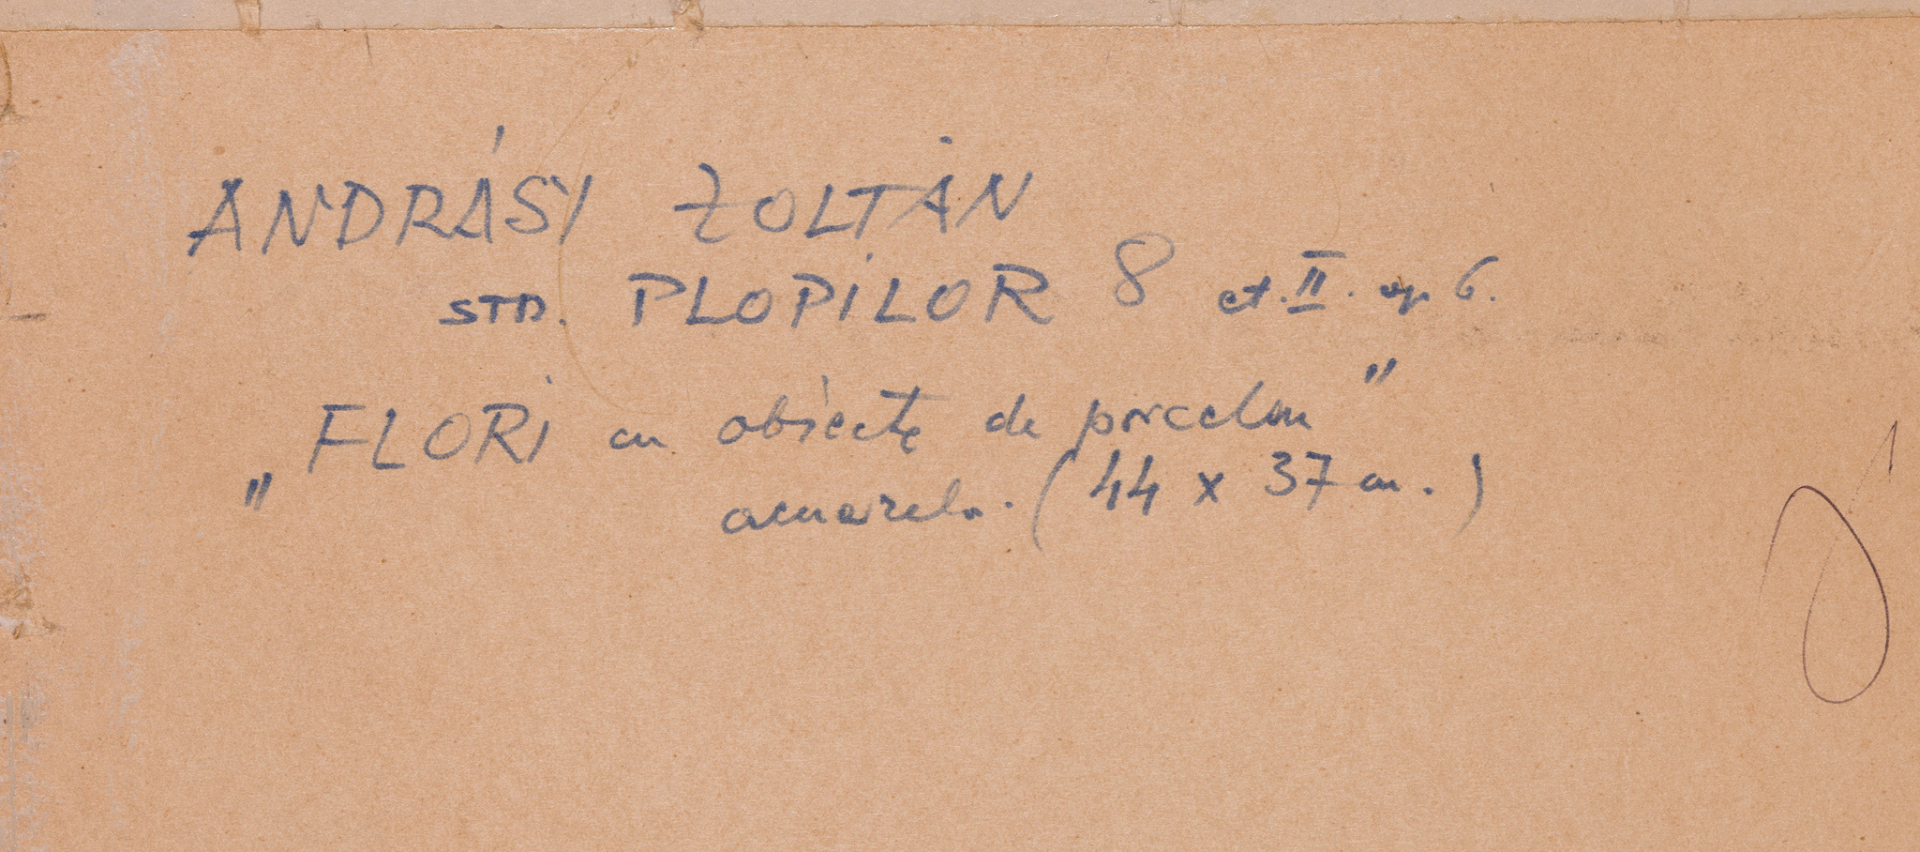 ANDRÁSY ZOLTÁN
STR. PLOPILOR 8 et. II. ap 6.
„FLORI cu obiecte de porcelan"
acuarela. (44 x 37 cm.)